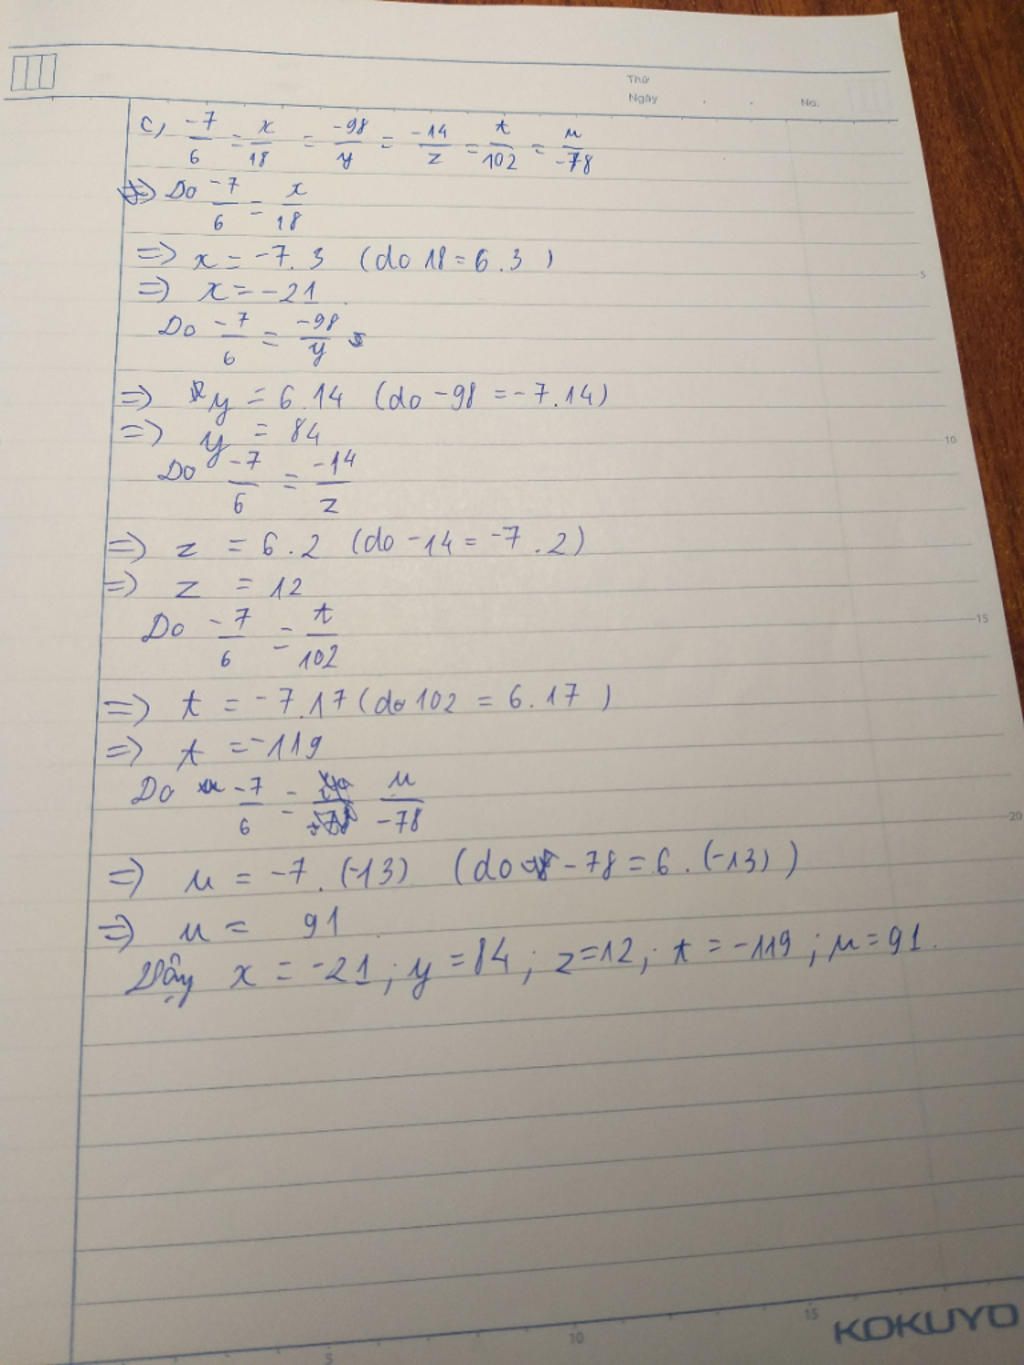 Thứ
Ngày . . No.
c, -7/6 = x/18 = -98/y = -14/z = t/102 = u/-78
=> Do -7/6 = x/18
=> x = -7.3 (do 18 = 6.3)
=> x = -21
Do -7/6 = -98/y
=> y = 6.14 (do -98 = -7.14)
=> y = 84
Do -7/6 = -14/z
=> z = 6.2 (do -14 = -7.2)
=> z = 12
Do -7/6 = t/102
=> t = -7.17 (do 102 = 6.17)
=> t = -119
Do -7/6 = u/-78
=> u = -7.(-13) (do -78 = 6.(-13))
=> u = 91
Vậy x = -21; y = 84; z = 12; t = -119; u = 91.
5
10
15
20
5 10 15
KOKUYO